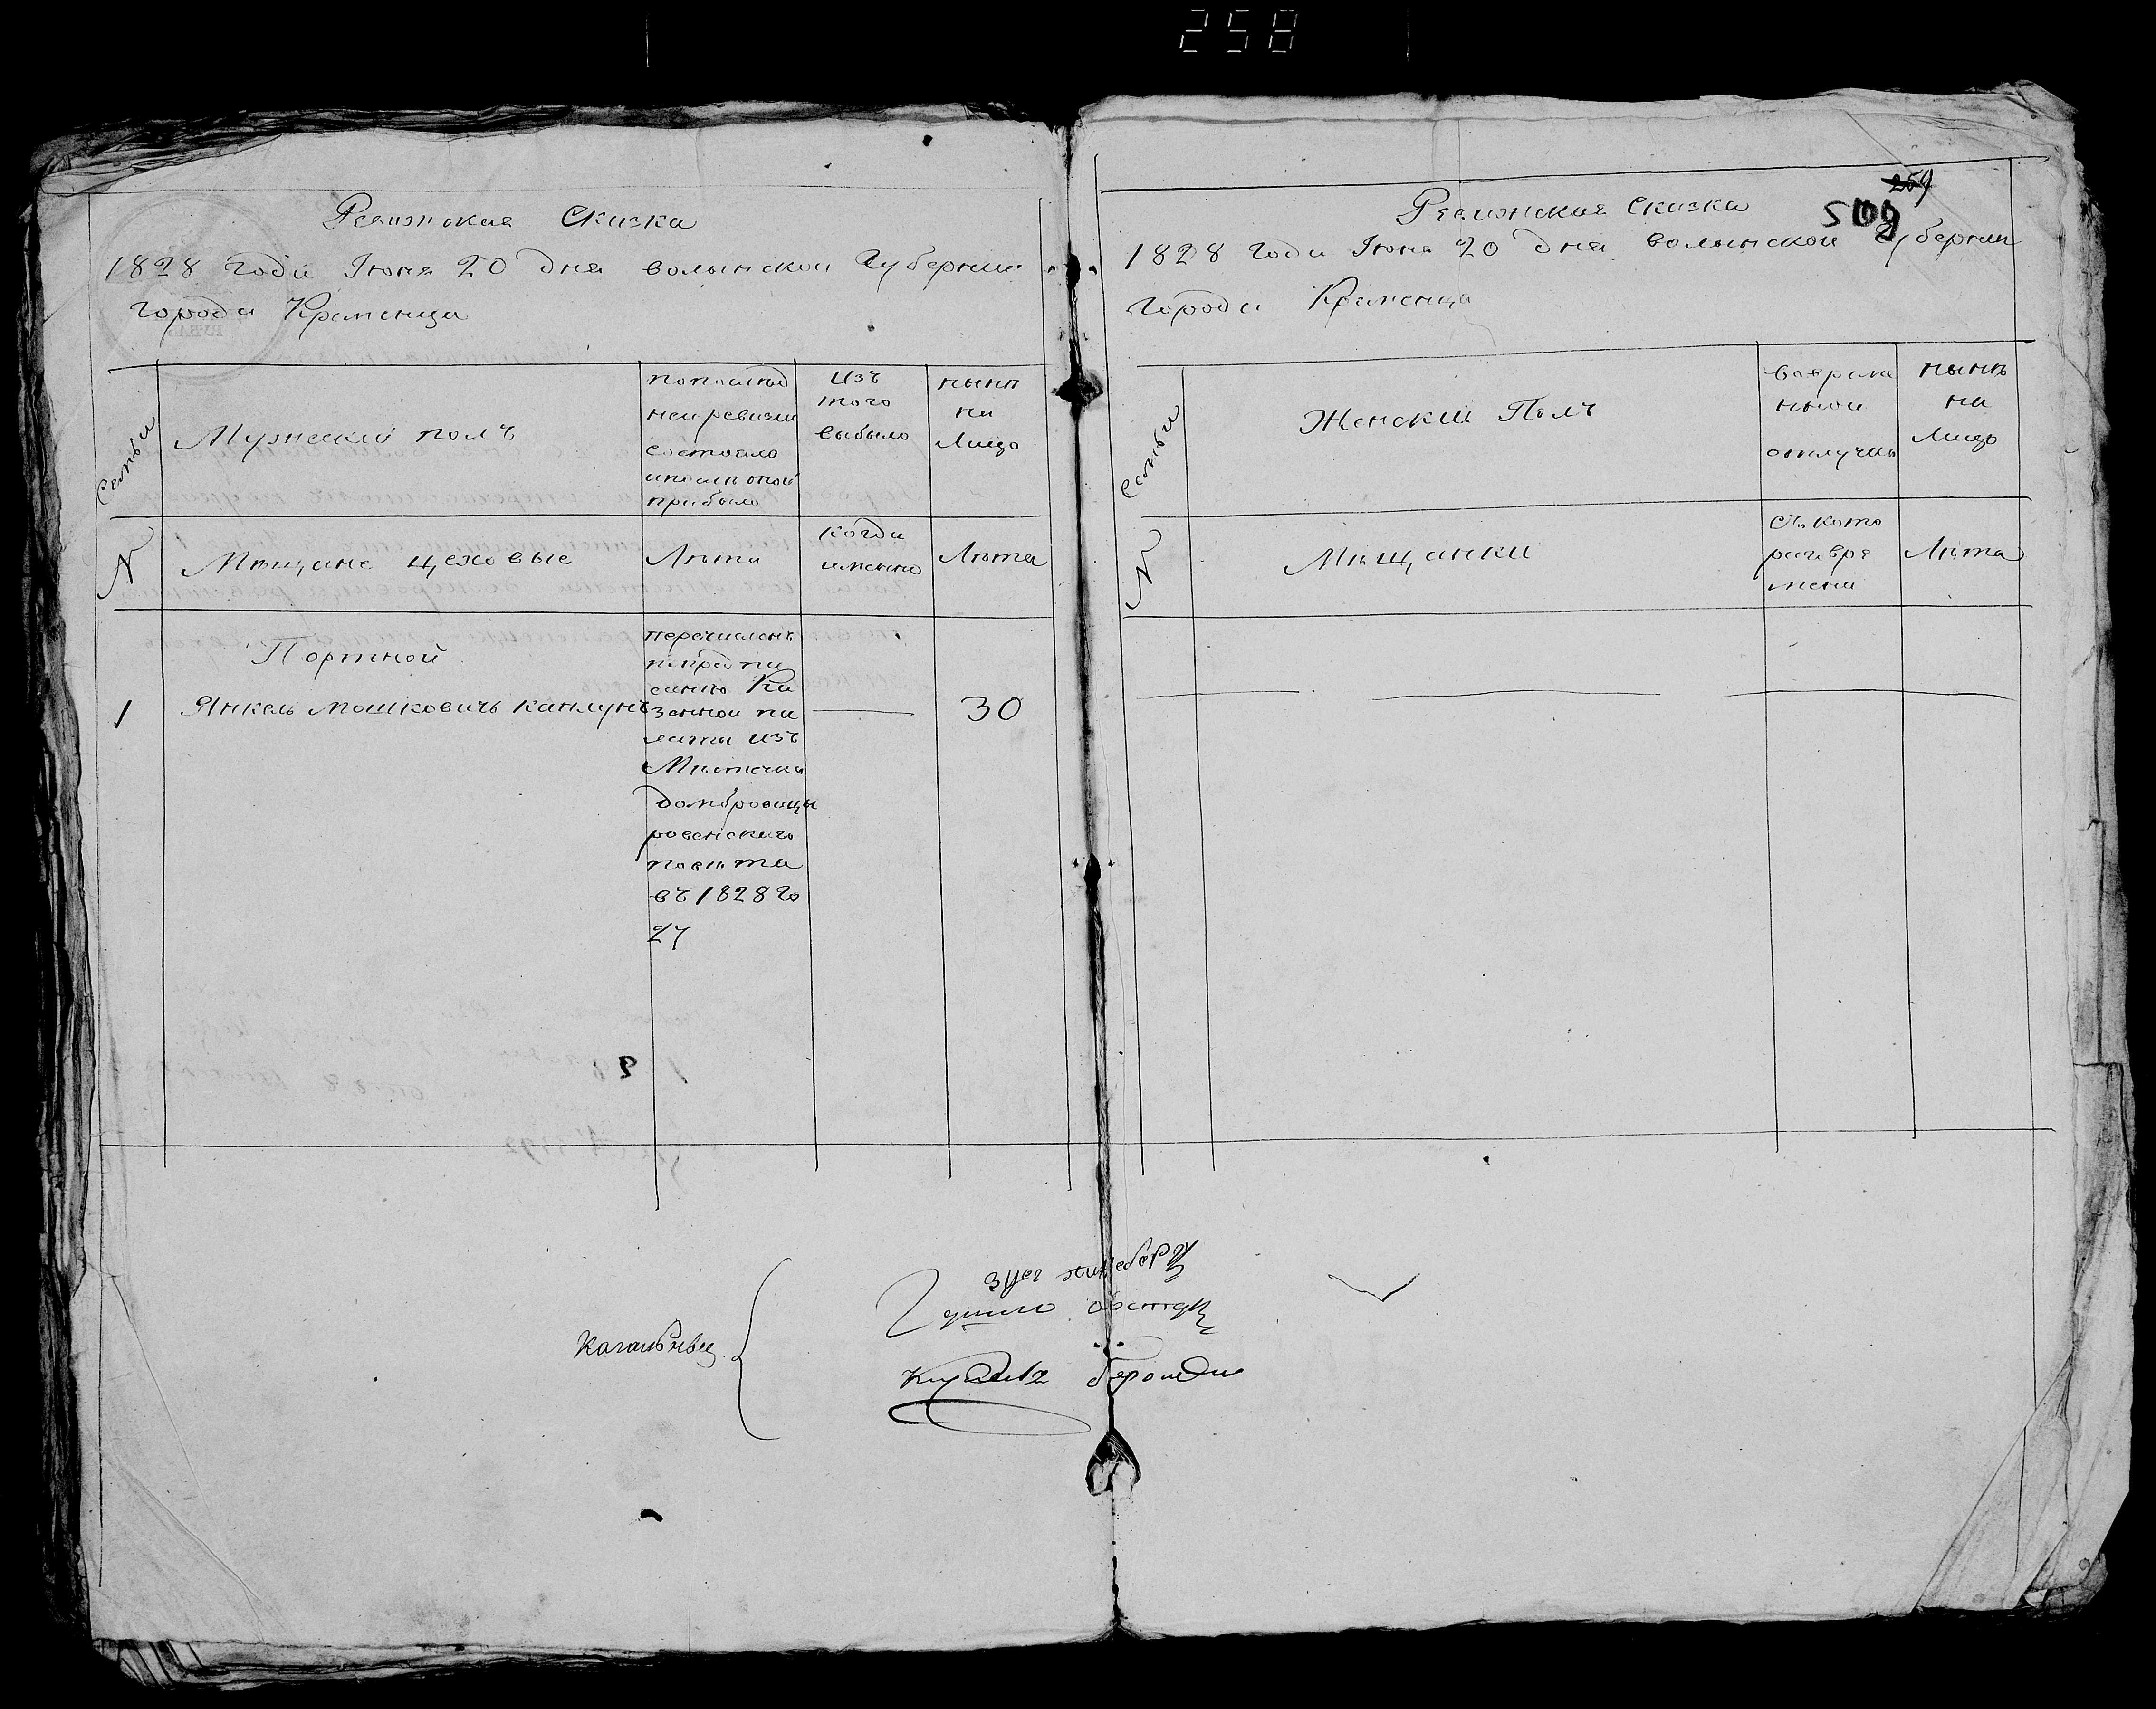 258
Ревизская Сказка
1828 года Июня 20 дня волынской Губернии
города Кременца
Семьи
Мужеский полъ
попослѣд
ней ревизии
состояло
ипослѣ оной
прибыло
изъ
того
выбыло
нынѣ
на
Лицо
N
Мѣщане цеховые
Лѣта
когда
имянно
Лѣта
Портной
1
Янкель Мошковичъ Каплунъ
перечисленъ
попредпи
санию Ка
зенной па
латы изъ
Мѣстечка
домбровицы
ровенскаго
повѣта
въ 1828 го
27
30
259
509
Ревизская Сказка
1828 года Июня 20 дня волынской Губернии
города Кременца
Семьи
Женский Полъ
вовремѣ
нной
отлучкѣ
нынѣ
на
Лицо
N
Мѣщанки
съ кото
раго вре
мени
Лѣта
Кагальные